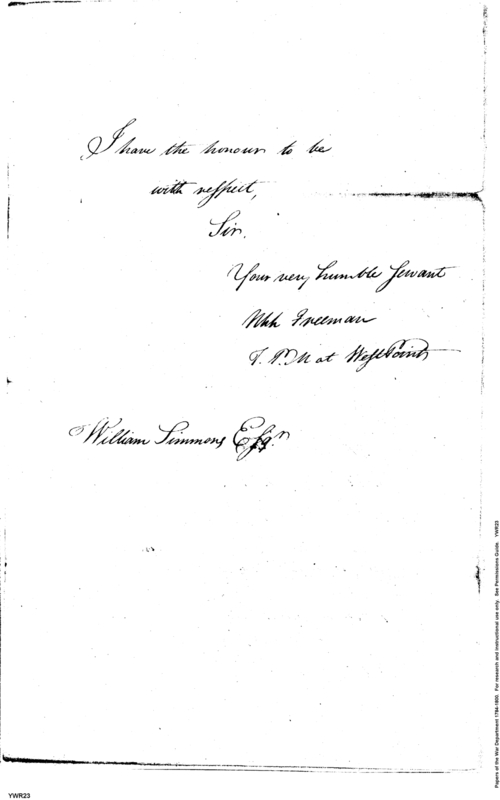 I have the honour to be
with respect,
Sir.
Your very humble Servant
Freeman
T. P. M at West Point
William Simmons Esqr.
YWR23
Papers of the War Department 1784-1800. For research and instructional use only. See Permissions Guide. YWR23